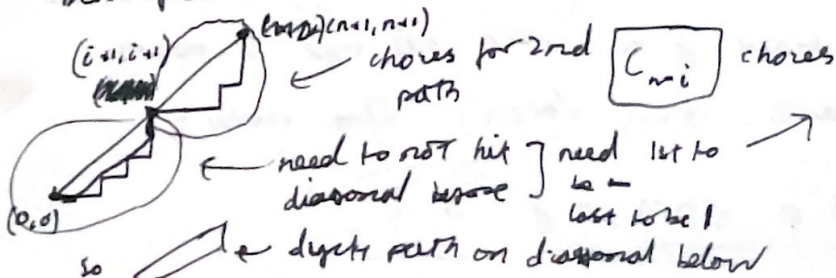 (n+1, n+1)
(i+1, i+1)
choices for 2nd
path
C_{n-i} choices
need to not hit
diagonal before
need 1st to
be –
last to be 1
(0,0)
so
path on diagonal below